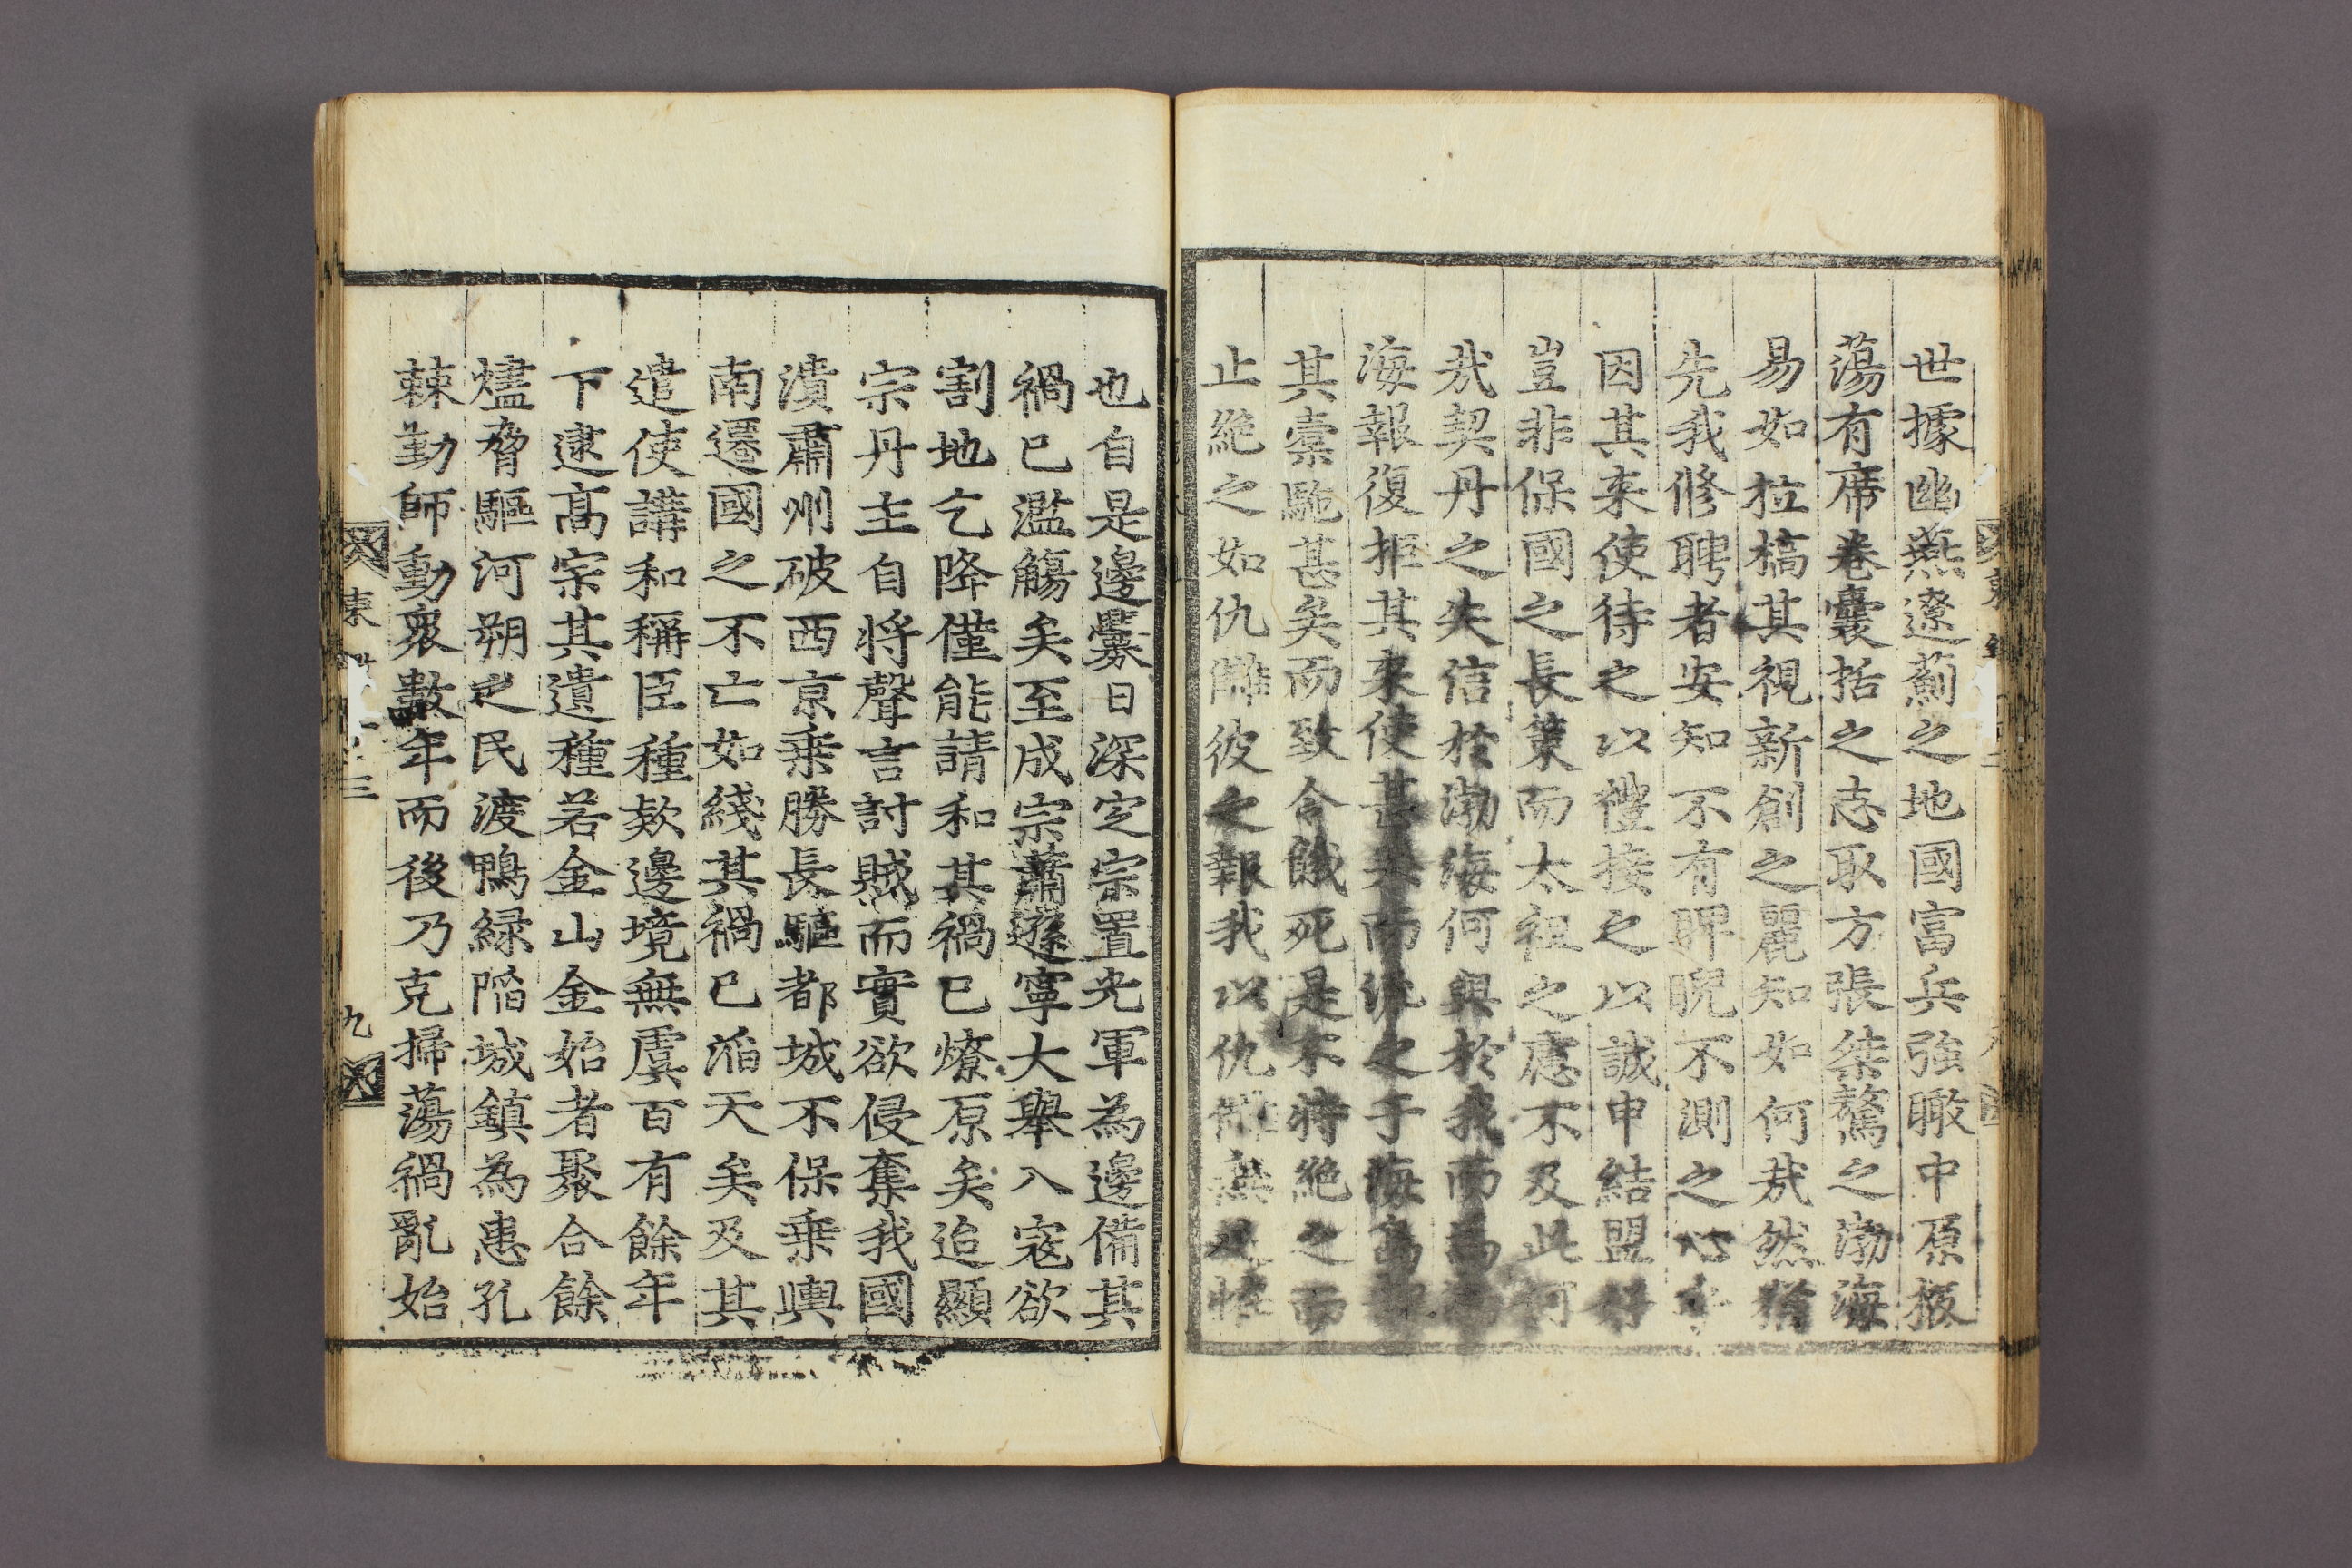 世據幽燕遼薊之地國富兵強瞰中原掀
蕩有席卷囊括之志取方張桀驁之渤海
易如拉槁其視新創之麗知如何㢤然猶
先我修聘者安知不有睥睨不測之心乎
因其来使待之以禮接之以誠申結盟好
豈非保國之長策而太祖之慮不及此何
㢤契丹之失信於渤海何與於我而為渤
海報復拒其来使甚矣而流之于海島
其橐駞甚矣而致令餓死是不特絶之而
止絶之如仇讎彼之報我以仇讎無足恠
也自是邊釁日深定宗置光軍為邊備其
禍已濫觴矣至成宗蕭遜寧大舉入寇欲
割地乞降僅能請和其禍已燎原矣迨顯
宗丹主自將聲言討賊而實欲侵奪我國
潰肅州破西京乗勝長驅都城不保乗輿
南遷國之不亡如綫其禍已滔天矣及其
遣使講和稱臣種欵邊境無虞百有餘年
下逮高宗其遺種若金山金始者聚合餘
燼脅驅河朔之民渡鴨緑階城鎮為患孔
棘勤師動衆數年而後乃克掃蕩禍亂始
東
三
九